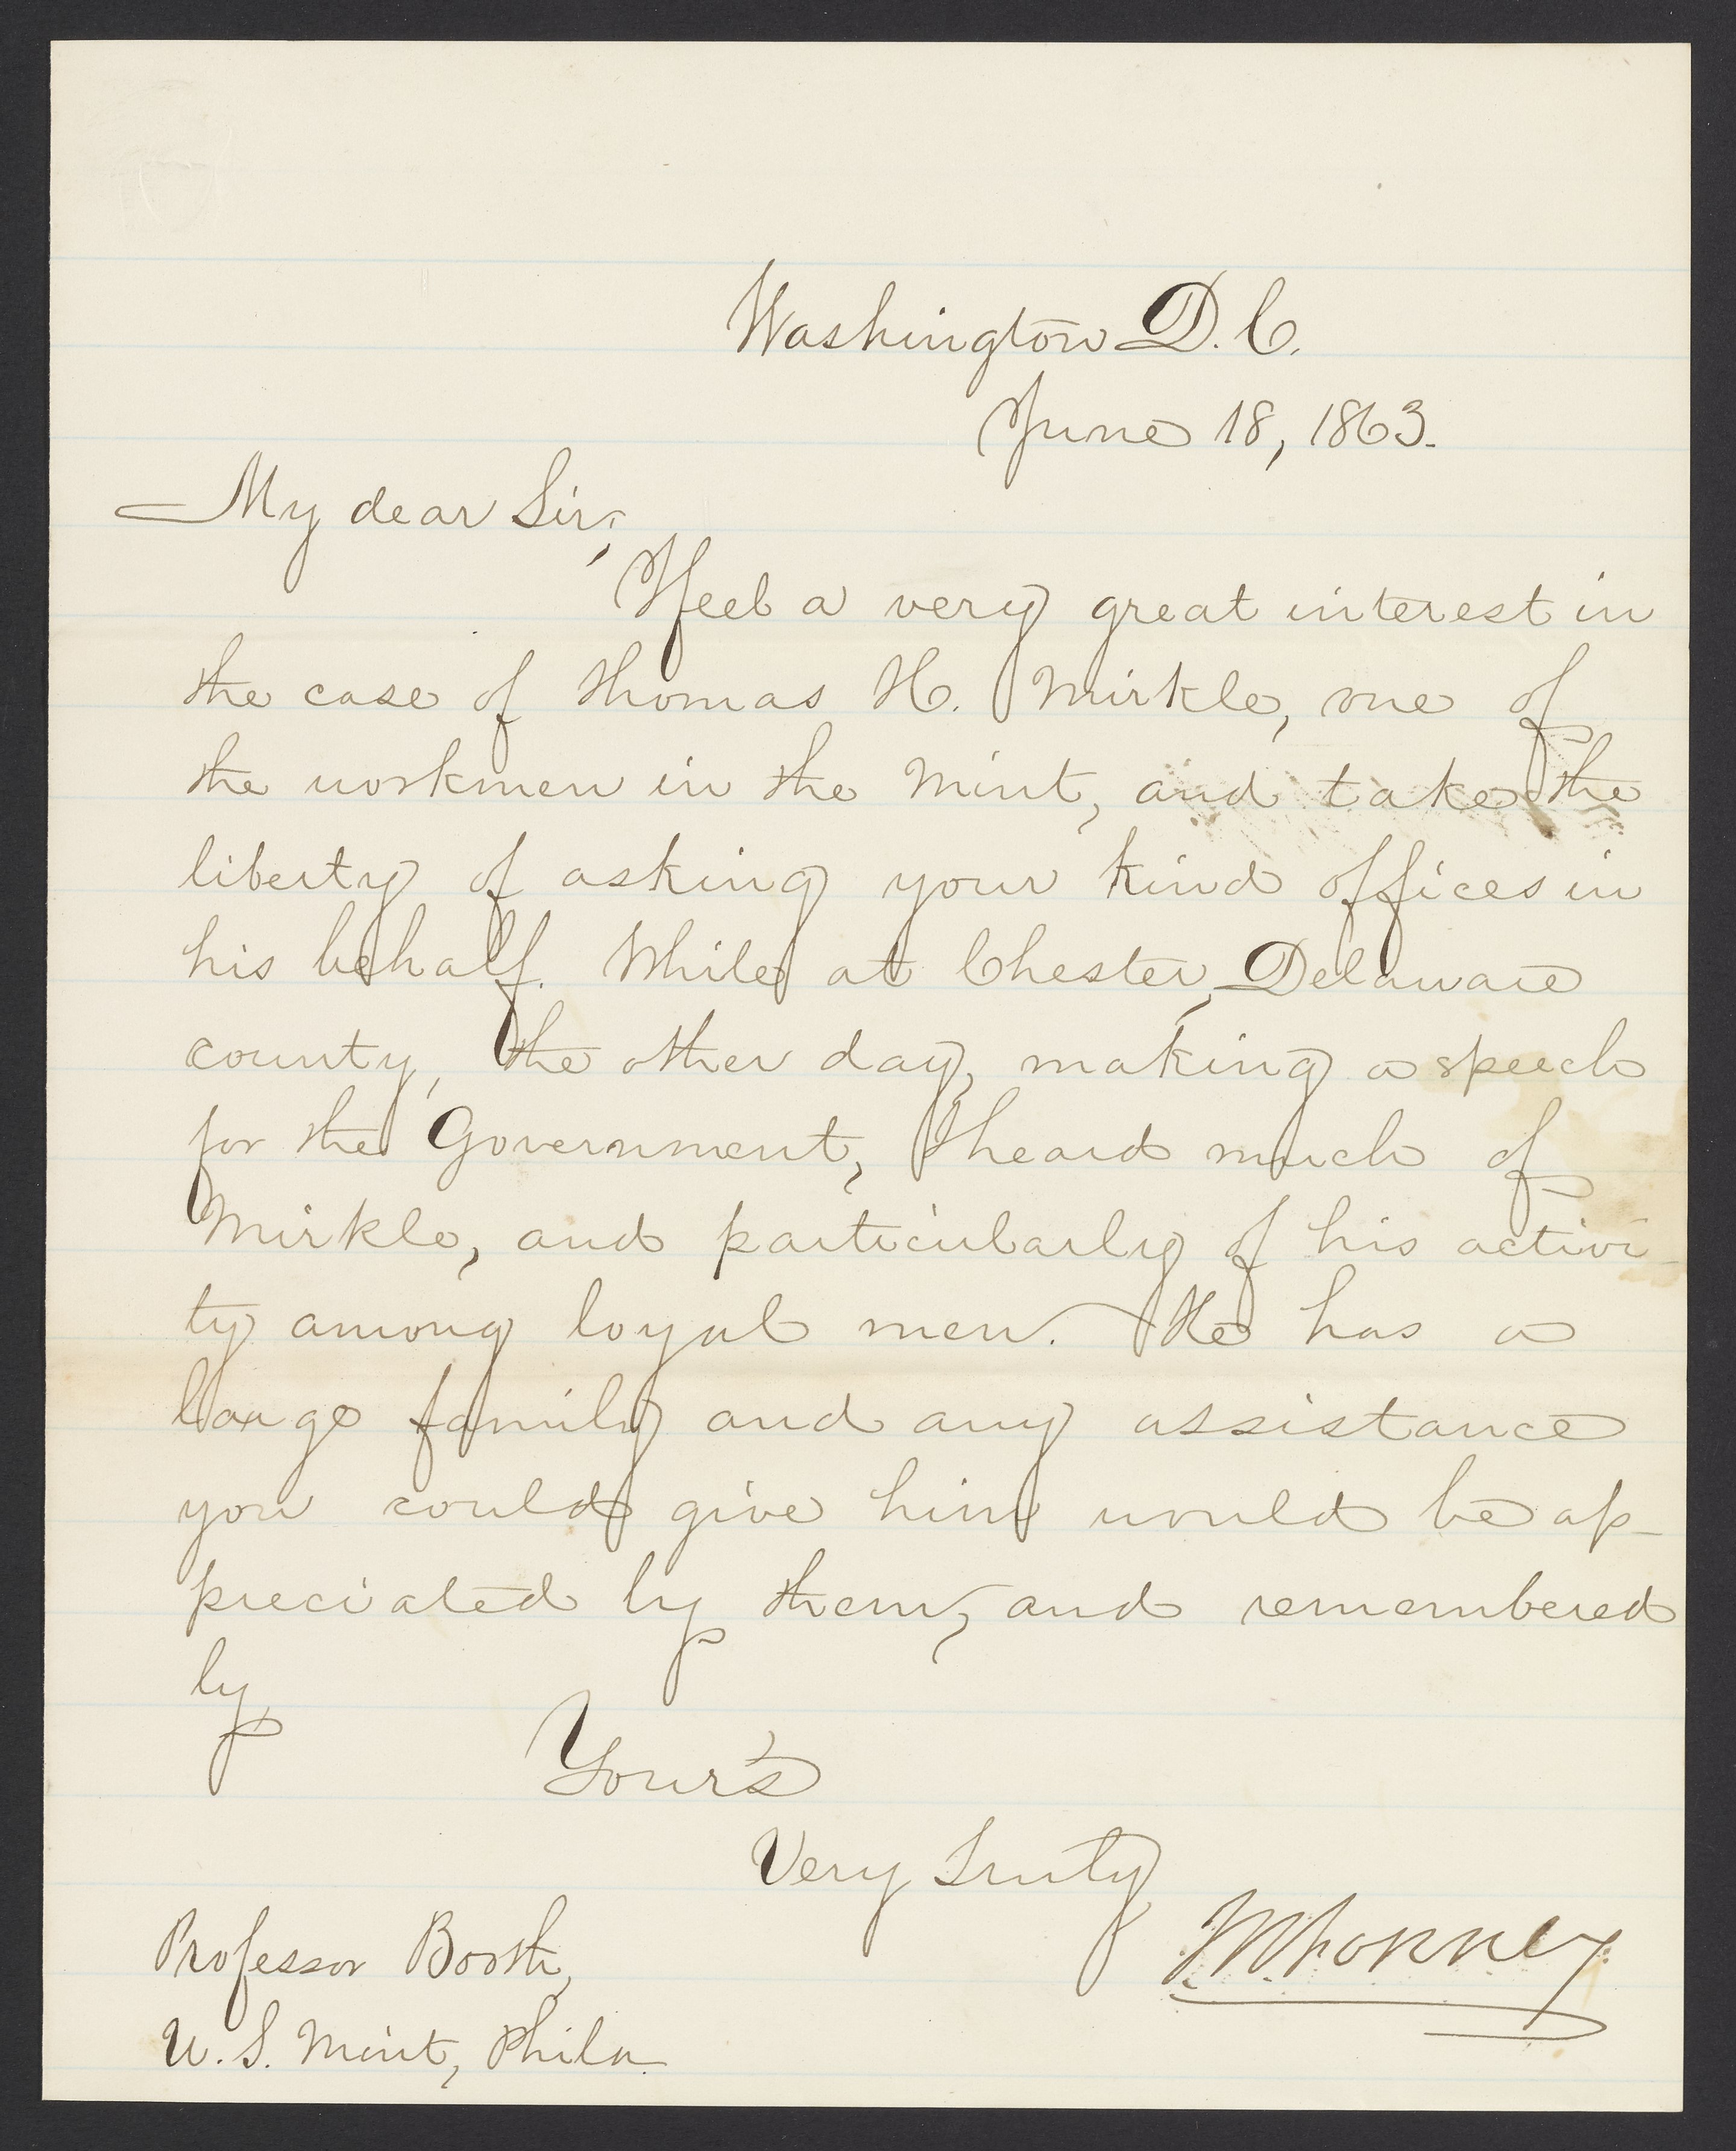 Washington D. C.
June 18, 1863.
My dear Sir;
I feel a very great interest in
the case of Thomas H. Mirkle, one of
the workmen in the Mint, and take the
liberty of asking your kind offices in
his behalf. While at Chester, Delaware
county, the other day, making a speech
for the Government, I heard much of
Mirkle, and particularly of his activi-
ty among loyal men. He has a
large family and any assistance
you could give him would be ap-
preciated by them, and remembered
by,
Your's
Very Truly
JWForney
Professor Booth,
U. S. Mint, Phila.